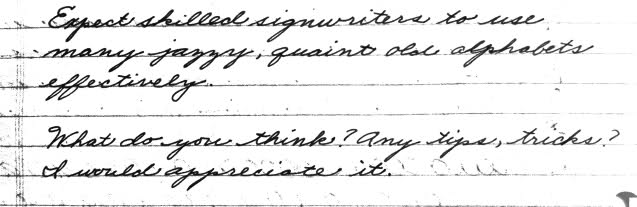 Expect skilled signwriters to use
many jazzy, quaint old alphabets
effectively.
What do you think? Any tips, tricks?
I would appreciate it.